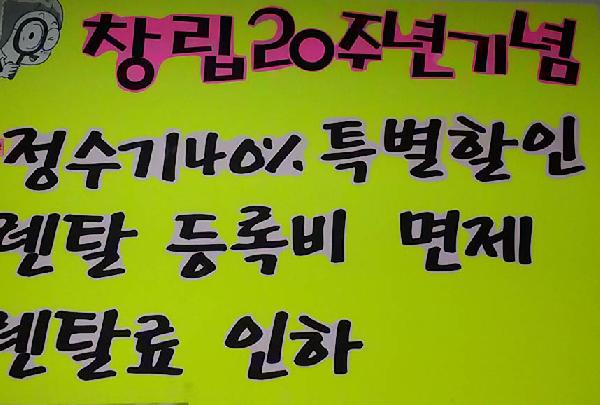 창립20주년기념
정수기40% 특별할인
렌탈 등록비 면제
렌탈료 인하